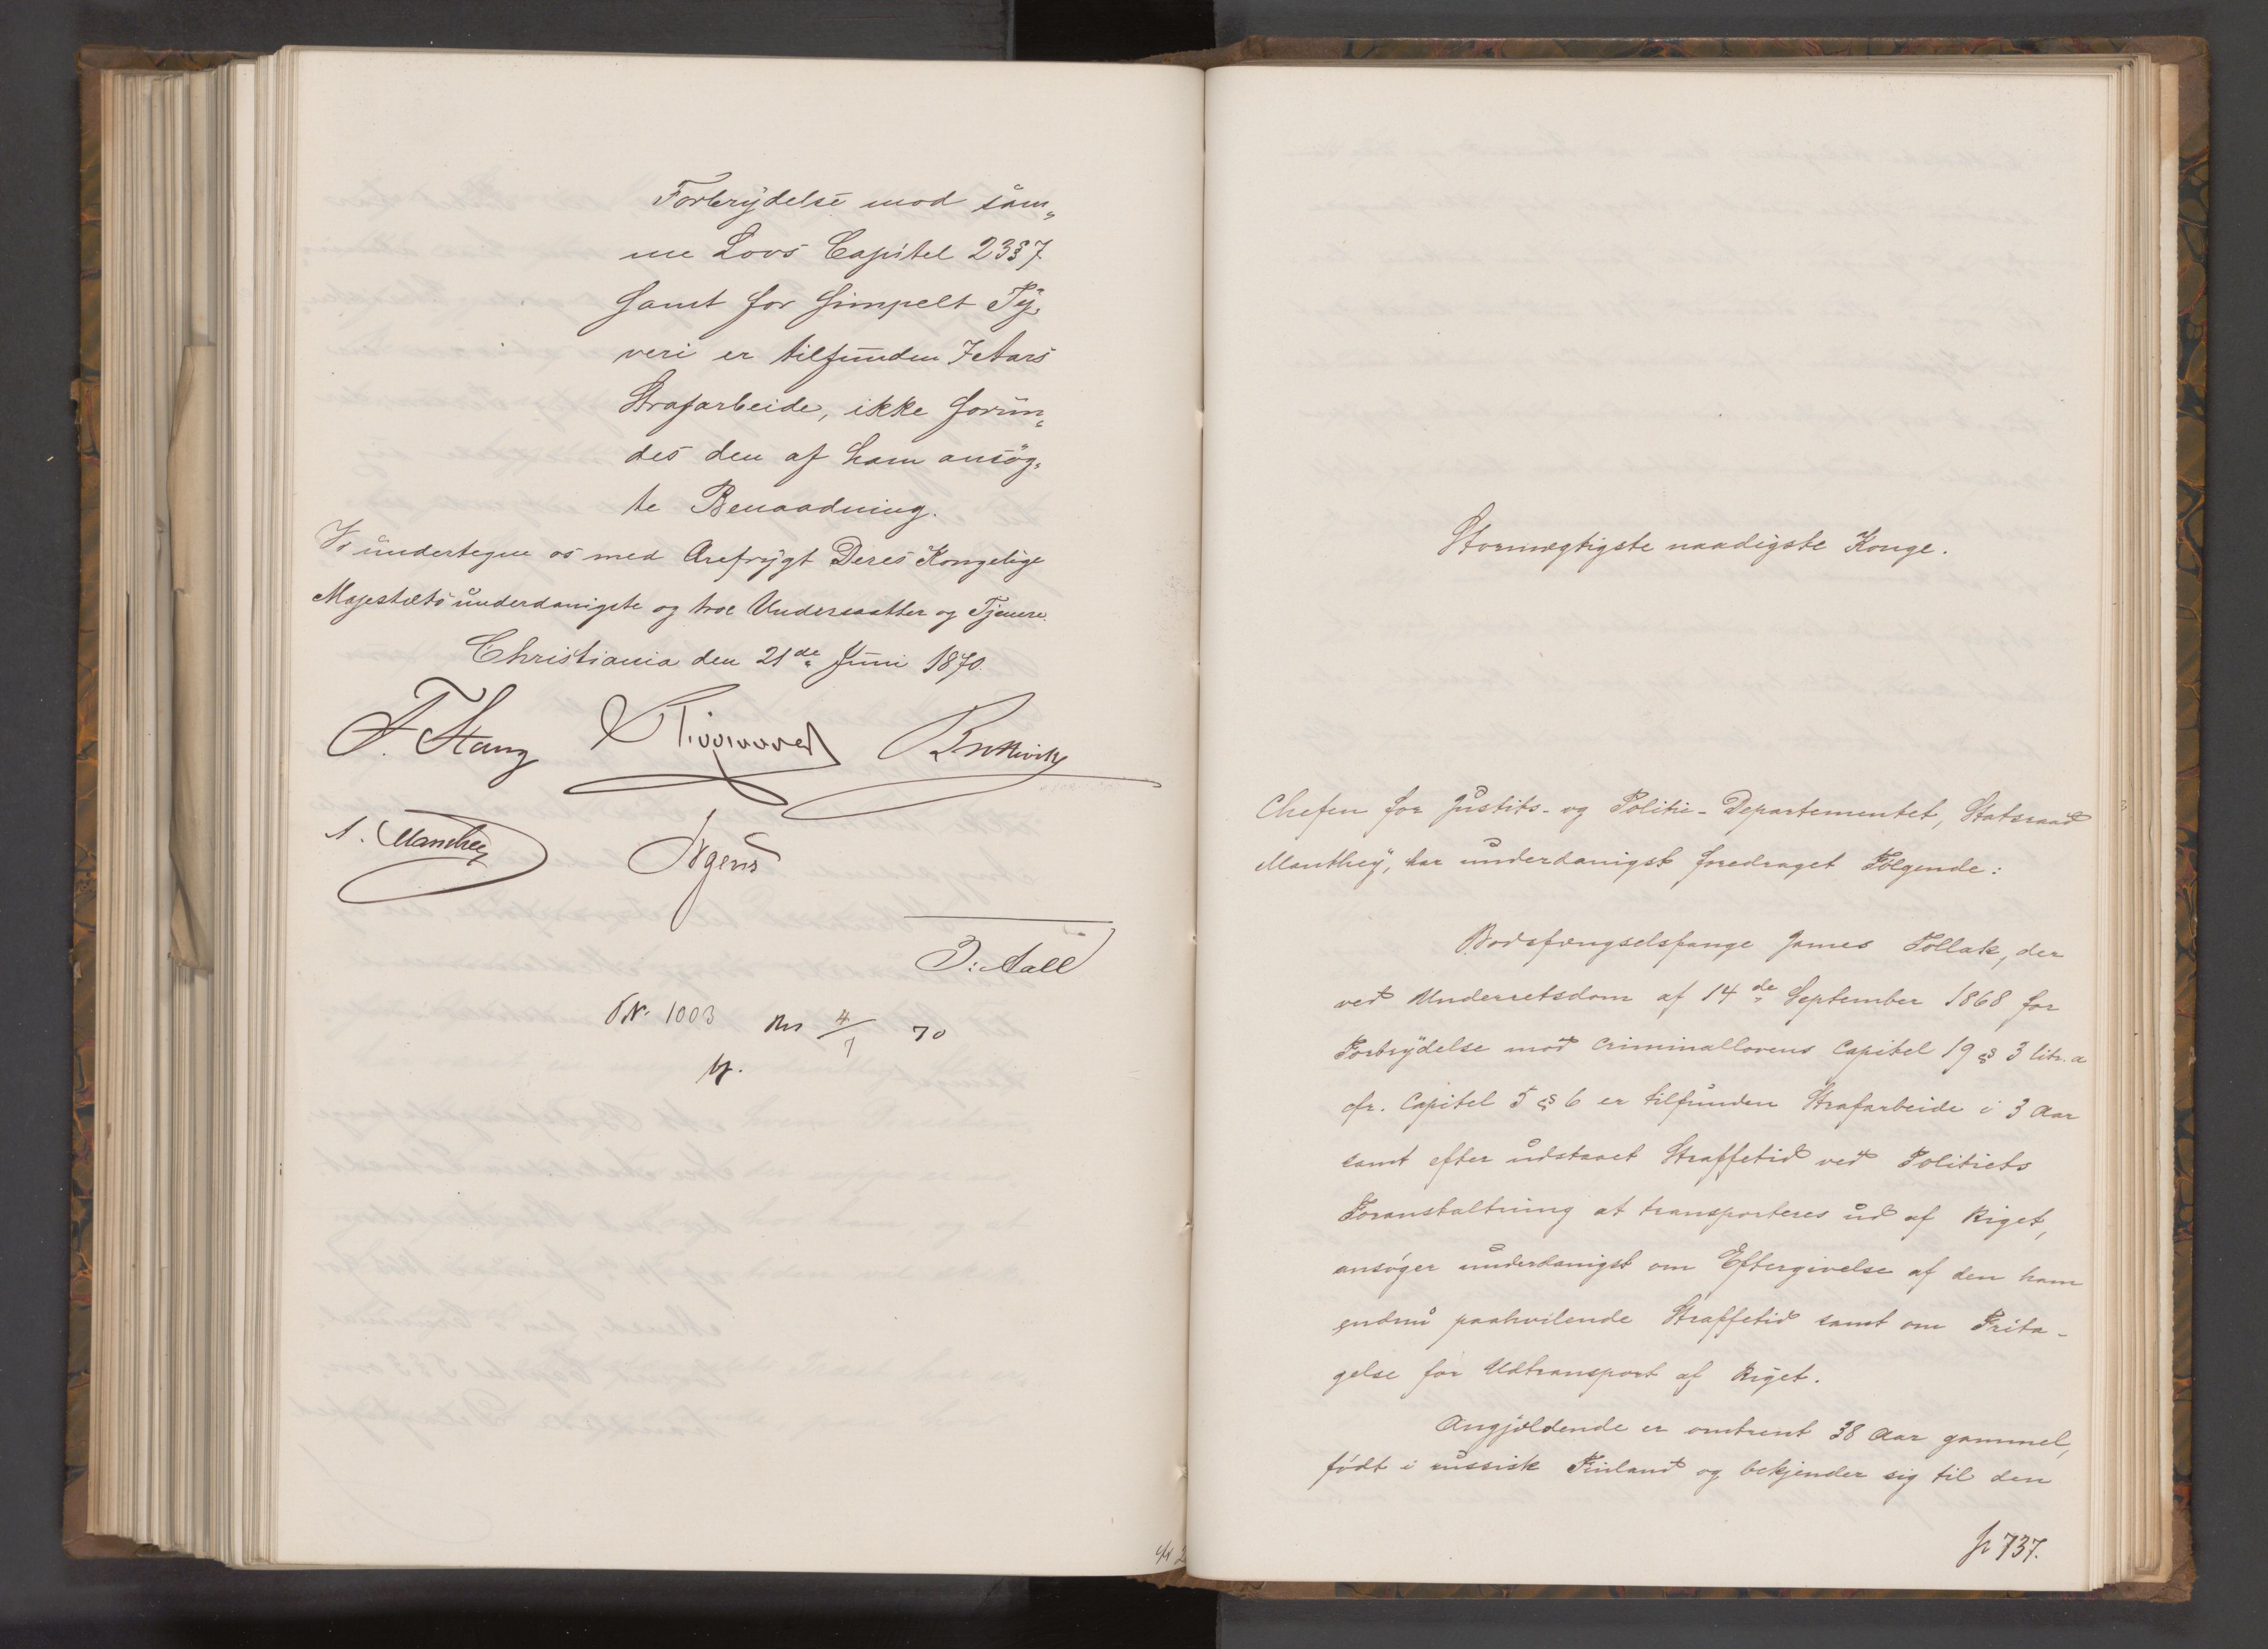 Forbrydelse mod sam„
me Lovs Capitel 23 § 7
samt for simpelt Ty„
veri er tilfunden 7 Aars
Strafarbeide, ikke forun„
des den af ham ansøg„
te Benaadning.
Vi undertegne os med Ærefrygt Deres Kongelige
Majestæts underdanigste og troe Undersaatter og Tjenere.
Christiania den 21de Juni 1870.
F. Stang
A. Manthey
Irgens
J: Aall
No 1003 4/7 70
Stormægtigste naadigste Konge.
Chefen for Justits- og Politie-Departementet, Statsraad
Manthey, har underdanigst foredraget Følgende:
Bodsfængselsfange James Pollak, der
ved Underretsdom af 14de September 1868 for
Forbrydelse mod Criminallovens Capitel 19 § 3 litr. a
cfr. Capitel 5 § 6 er tilfunden Strafarbeide i 3 Aar
samt efter udstaaet Straffetid ved Politiets
Foranstaltning at transporteres ud af Riget,
ansøger underdanigst om Eftergivelse af den ham
endnu paahvilende Straffetid samt om Frita-
gelse for Udtransport af Riget.
Angjældende er omtrent 38 Aar gammel,
født i russisk Finland og bekjender sig til den
737.